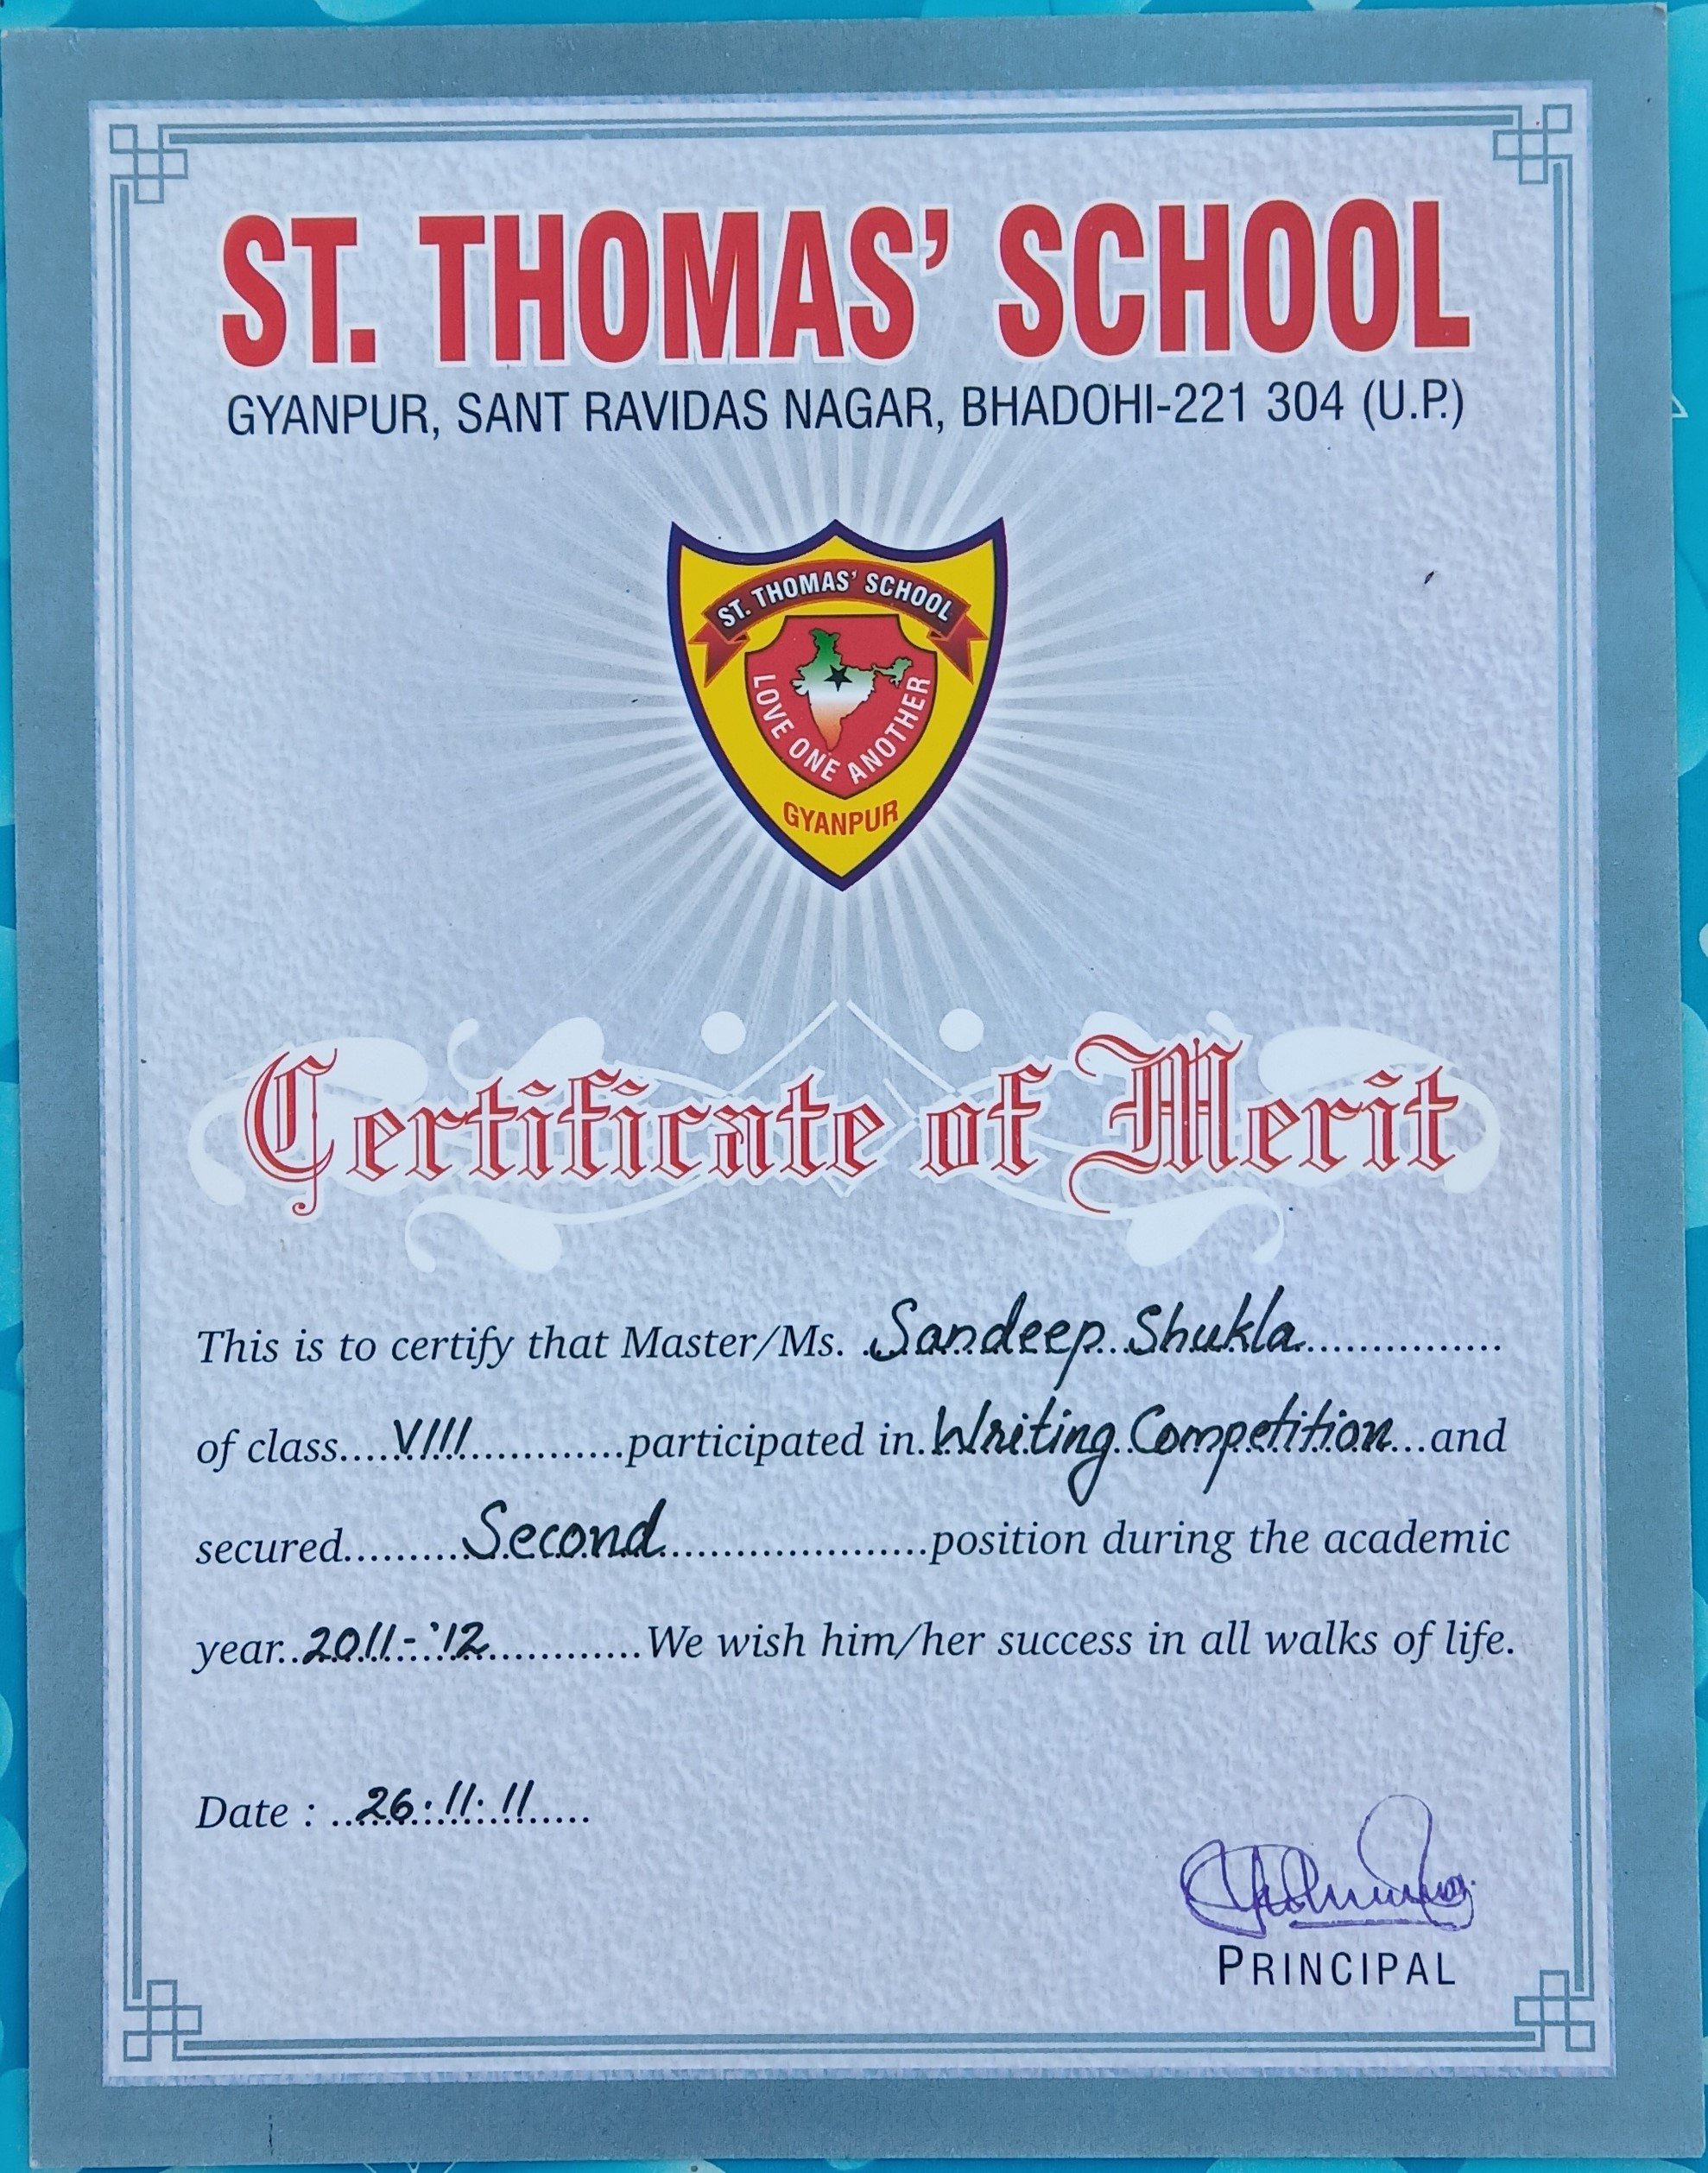 ST. THOMAS' SCHOOL
GYANPUR, SANT RAVIDAS NAGAR, BHADOHI-221 304 (U.P.)
ST. THOMAS' SCHOOL
LOVE ONE ANOTHER
GYANPUR
Certificate of Merit
This is to certify that Master/Ms. Sandeep Shukla
of class....VIII............participated in.Writing Competition...and
secured..........Second........................position during the academic
year..2011-'12............We wish him/her success in all walks of life.
Date : ..26.11.11.....
PRINCIPAL